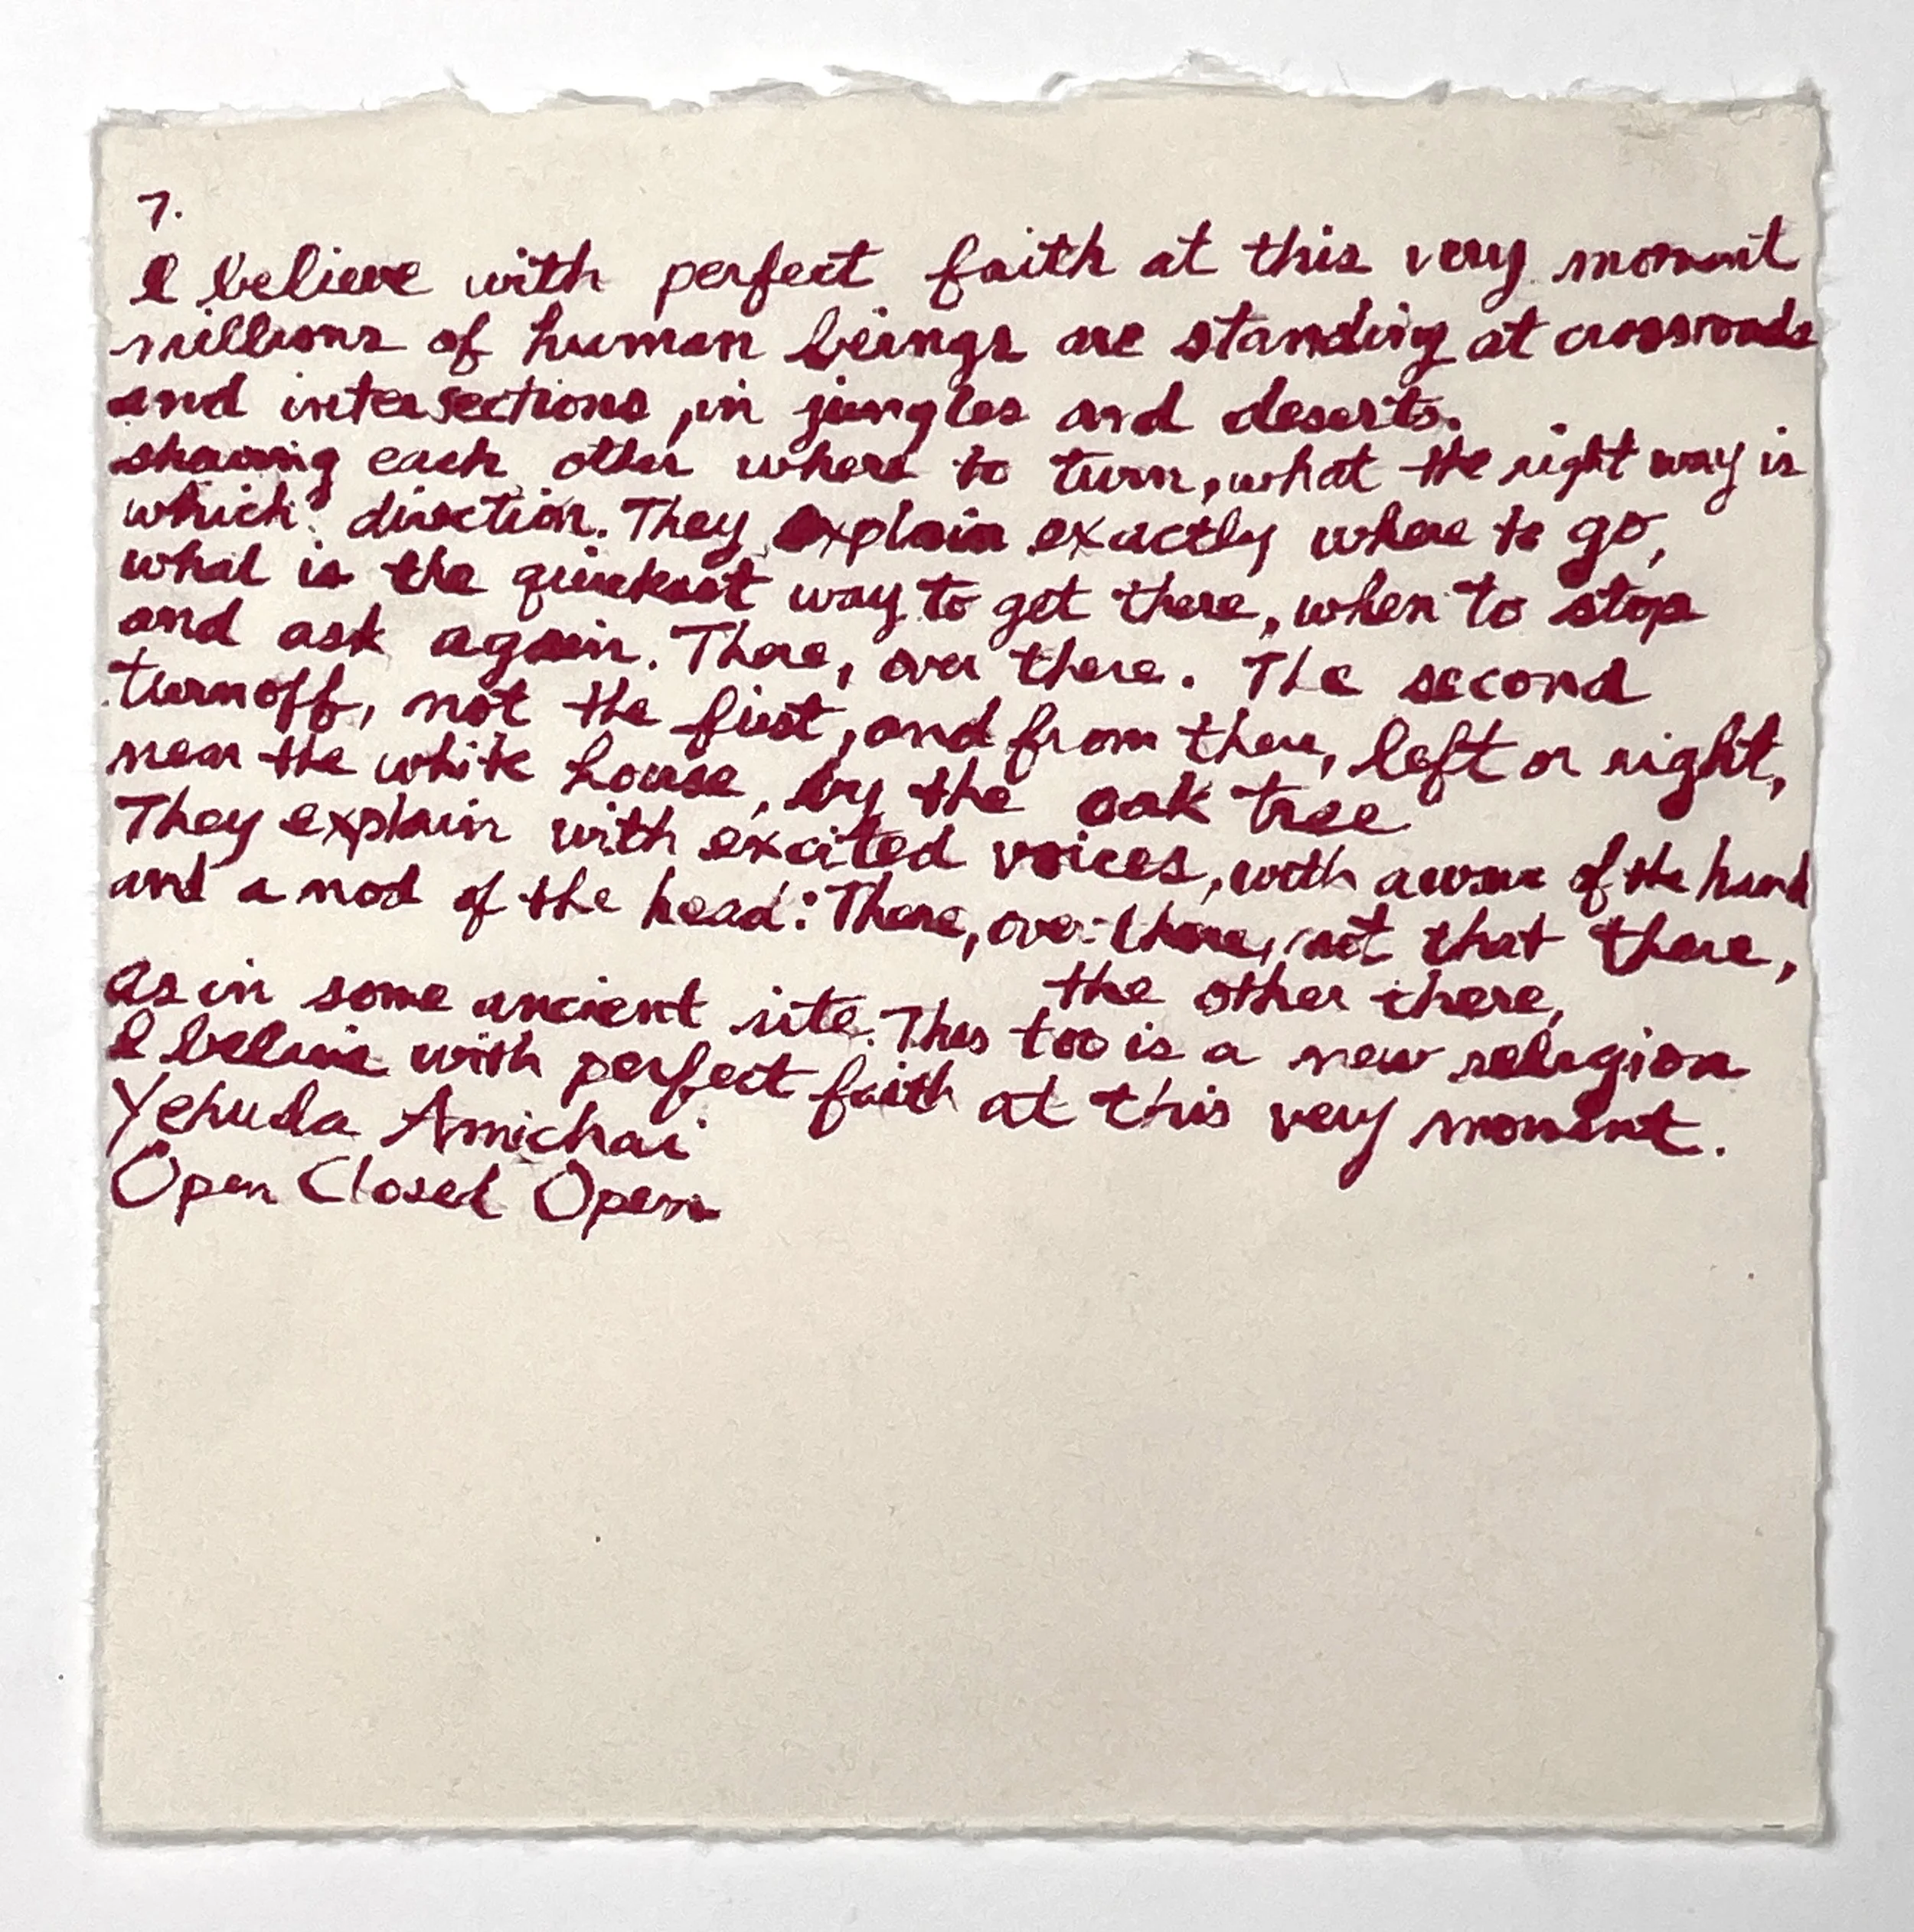 7.
I believe with perfect faith at this very moment
millions of human beings are standing at crossroads
and intersections, in jungles and deserts.
showing each other where to turn, what the right way is
which direction. They explain exactly where to go,
what is the quickest way to get there, when to stop
and ask again. There, over there. The second
turnoff, not the first, and from there, left or right,
near the white house, by the oak tree
They explain with excited voices, with a wave of the hand
and a nod of the head: There, over there, not that there,
the other there,
as in some ancient site. This too is a new religion
I believe with perfect faith at this very moment.
Yehuda Amichai
Open Closed Open